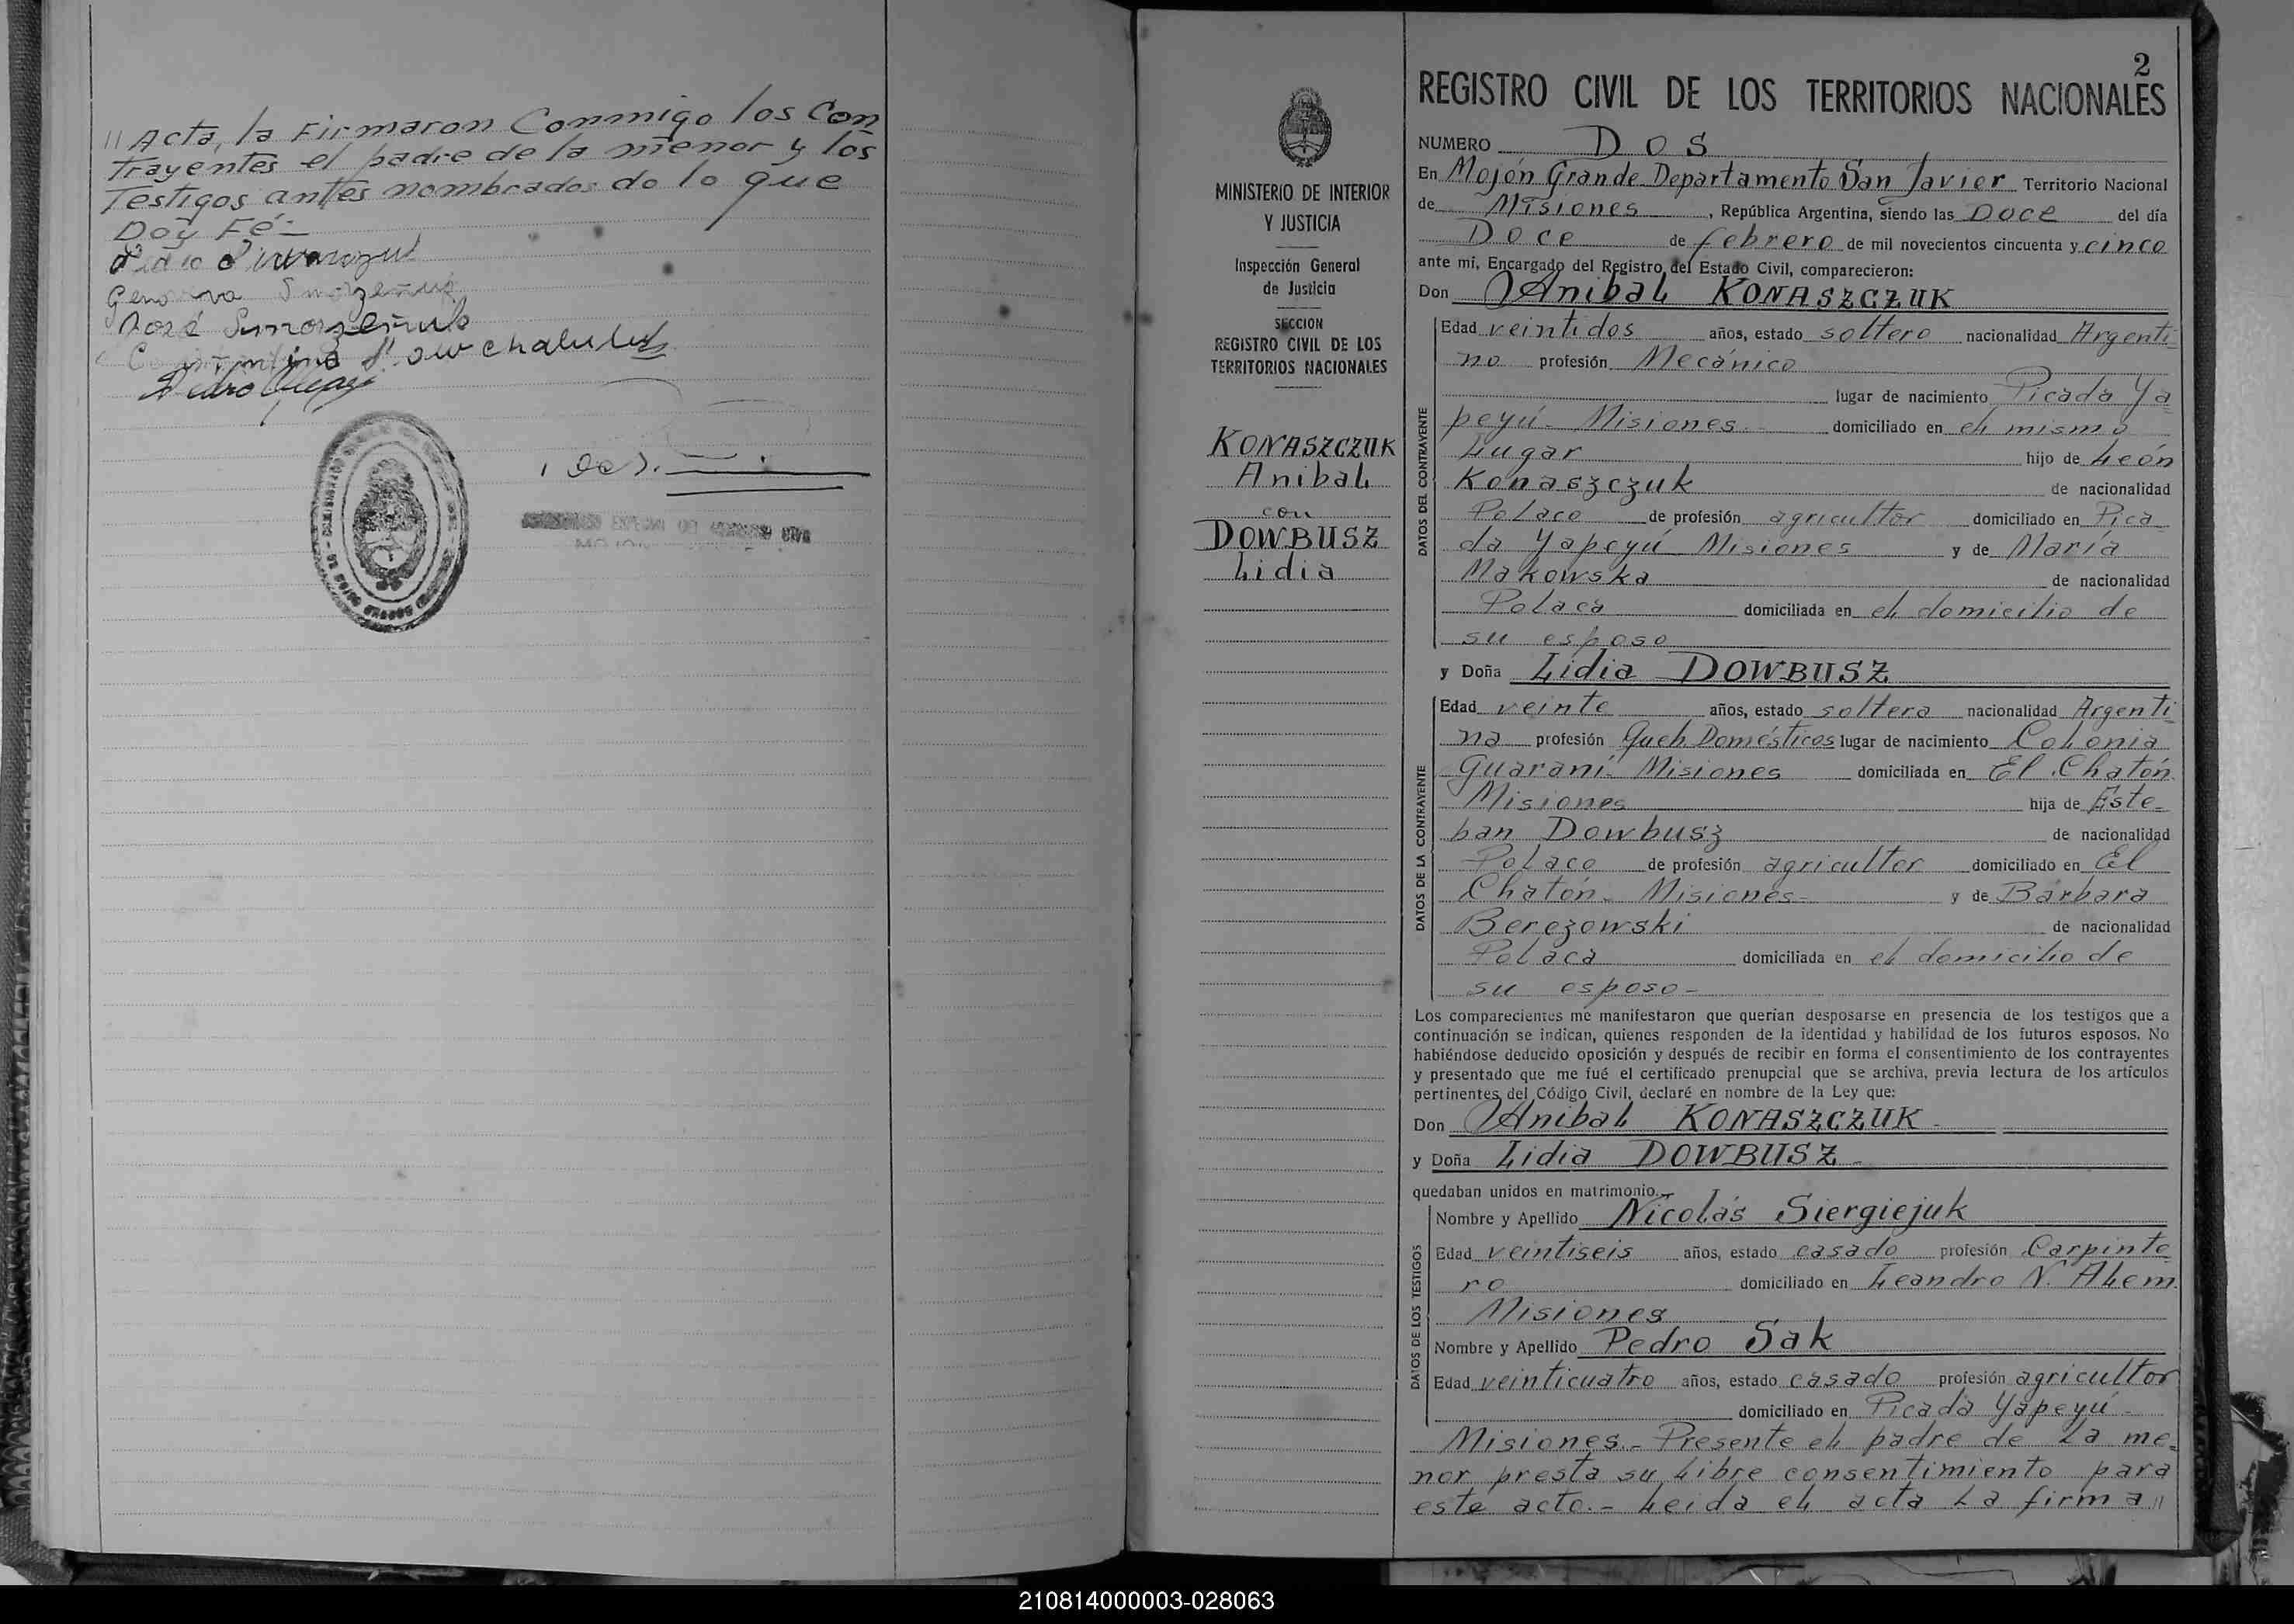 // Acta, la Firmaron Conmigo los Con
trayentes el padre de la menor y los
Testigos antes nombrados do lo que
Doy Fé-
José
Pedro
2
REGISTRO CIVIL DE LOS TERRITORIOS NACIONALES
MINISTERIO DE INTERIOR
Y JUSTICIA
Inspección General
de Justicia
SECCION
REGISTRO CIVIL DE LOS
TERRITORIOS NACIONALES
KONASZCZUK
Anibal
con
DOWBUSZ
Lidia
NUMERO DOS
En Mojón Grande Departamento San Javier Territorio Nacional
de Misiones, República Argentina, siendo las Doce del día
Doce de febrero de mil novecientos cincuenta y cinco
ante mí, Encargado del Registro del Estado Civil, comparecieron:
Don Anibal KONASZCZUK
DATOS DEL CONTRAYENTE
Edad veintidos años, estado soltero nacionalidad Argenti=
no profesión Mecánico
lugar de nacimiento Picada Ya=
peyú- Misiones- domiciliado en el mismo
Lugar hijo de León
Konaszczuk de nacionalidad
Polaco de profesión agricultor domiciliado en Pica-
da Yapeyú Misiones y de María
Makowska de nacionalidad
Polaca domiciliada en el domicilio de
su esposo
y Doña Lidia DOWBUSZ
DATOS DE LA CONTRAYENTE
Edad veinte años, estado soltera nacionalidad Argenti
na profesión Queh Domésticos lugar de nacimiento Colonia
Guaraní- Misiones domiciliada en El Chatón
Misiones hija de Este-
ban Dowbusz de nacionalidad
Polaco de profesión agricultor domiciliado en El
Chatón- Misiones- y de Bárbara
Berezowski de nacionalidad
Polaca domiciliada en el domicilio de
su esposo-
Los comparecientes me manifestaron que querían desposarse en presencia de los testigos que a
continuación se indican, quienes responden de la identidad y habilidad de los futuros esposos. No
habiéndose deducido oposición y después de recibir en forma el consentimiento de los contrayentes
y presentado que me fué el certificado prenupcial que se archiva, previa lectura de los artículos
pertinentes del Código Civil, declaré en nombre de la Ley que:
Don Anibal KONASZCZUK-
y Doña Lidia DOWBUSZ-
quedaban unidos en matrimonio.
DATOS DE LOS TESTIGOS
Nombre y Apellido Nicolás Siergiejuk
Edad veintiseis años, estado casado profesión Carpinte
ro domiciliado en Leandro N. Alem.
Misiones
Nombre y Apellido Pedro Sak
Edad veinticuatro años, estado casado profesión agricultor
domiciliado en Picada Yapeyú-
Misiones.- Presente el padre de la me=
nor presta su libre consentimiento para
este acto.- Leida el acta la firma //
210814000003-028063